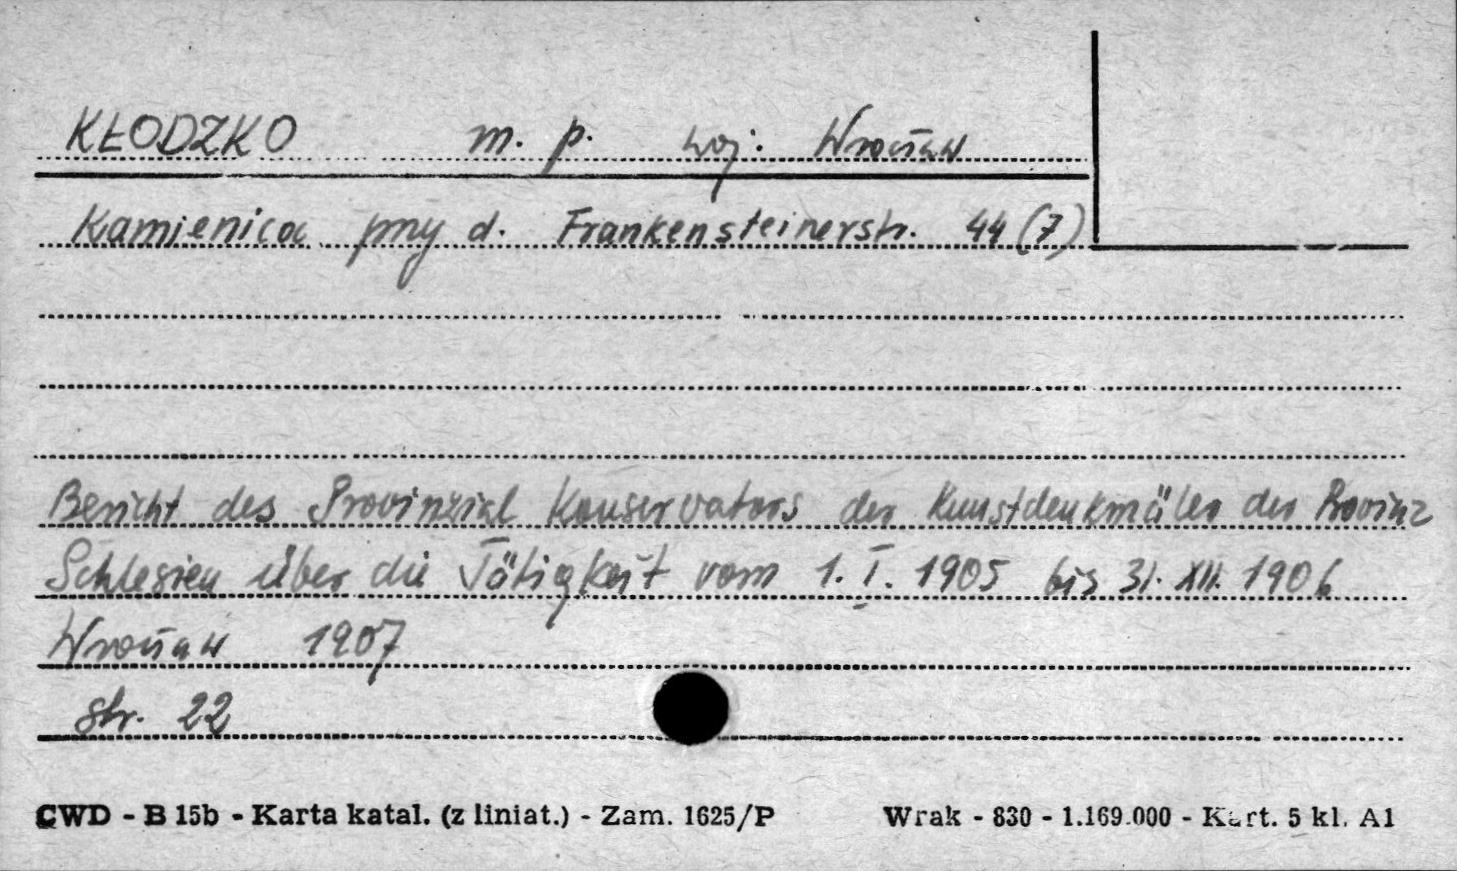 KŁODZKO m. p. woj. Wrocław
Kamienica przy d. Frankensteinerstr. 44 (7)
Bericht des Provinzial Konservators der Kunstdenkmäler der Provinz
Schlesien über die Tätigkeit vom 1. I. 1905 bis 31. XII. 1906
Wrocław 1907
str. 22
CWD - B 15b - Karta katal. (z liniat.) - Zam. 1625/P Wrak - 830 - 1.169.000 - Kart. 5 kl. A1